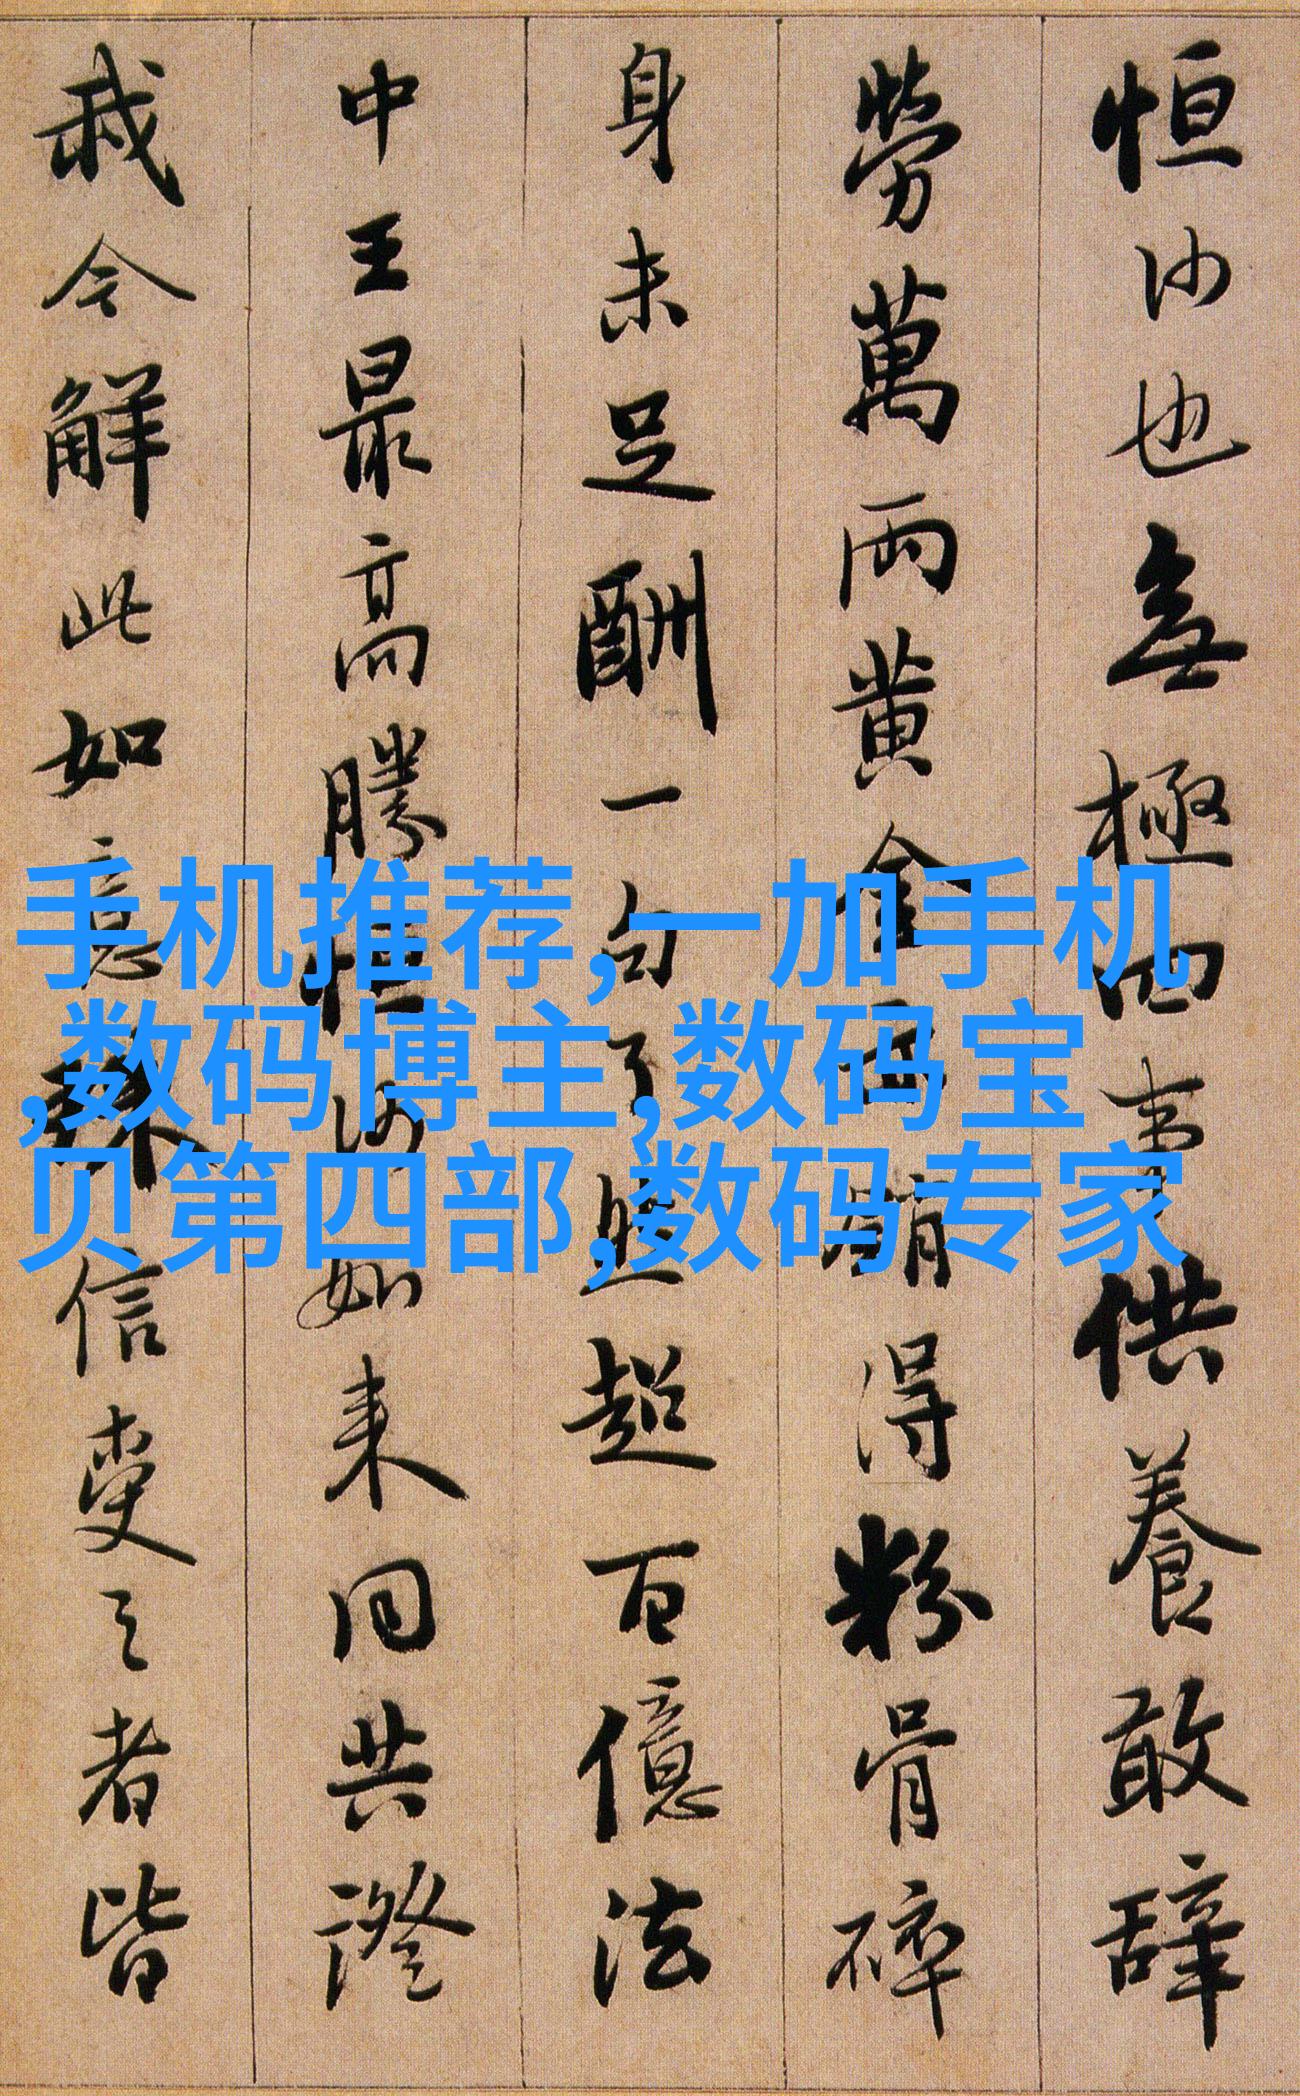 恒沙也無極四事供養敢辞
勞萬兩黄金 得粉骨碎
身未足酬一句了 超百億法
中王最高勝恒沙如来同共證
我今解此如意珠信受之者皆
手机推荐,一加手机
,数码博主,数码宝
贝第四部,数码专家